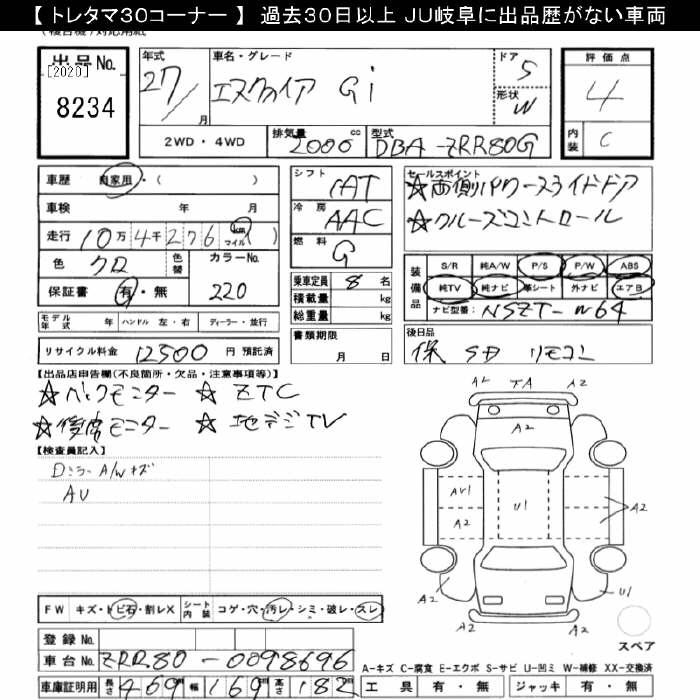 【 トレタマ30コーナー 】 過去30日以上 JU岐阜に出品歴がない車両
出品No.
[2020]
8234
年式
27/
月
車名・グレード
エスクァイア Gi
ドア
5
形状
W
評価点
4
内装
C
2WD・4WD
排気量
2000
cc
型式
DBA-ZRR80G
車歴
自家用・( )
車検
年 月
走行
10万4千276
km
マイル
( )
色
クロ
色替
カラーNo.
220
保証書
有・無
モデル年式
年
ハンドル
左・右
ディーラー・並行
リサイクル料金
12500
円 預託済
シフト
IAT
冷房
AAC
燃料
G
乗車定員
8
名
積載量
kg
総重量
kg
書類期限
月 日
セールスポイント
☆両側パワースライドドア
☆クルーズコントロール
装備品
S/R
純A/W
P/S
P/W
ABS
純TV
純ナビ
革シート
外ナビ
エアB
ナビ型番:
NSZT-W64
後日品
保 SD リモコン
【出品店申告欄(不良箇所・欠品・注意事項等)】
☆バックモニター ☆ETC
☆後席モニター ☆地デジTV
【検査員記入】
Dミラー A/Wキズ
AU
A2
TA
A2
A2
AU1
A2
U1
A2
A2
A2
U1
A2
スペア
FW
キズ・トビ石・割レX
シート内装
コゲ・穴・汚レ・シミ・破レ・スレ
登録No.
車台No.
ZRR80-0098696
車庫証明用
長さ
469
幅
169
高さ
182
A-キズ C-腐食 E-エクボ S-サビ U-凹ミ W-補修 XX-交換済
工具
有・無
ジャッキ
有・無